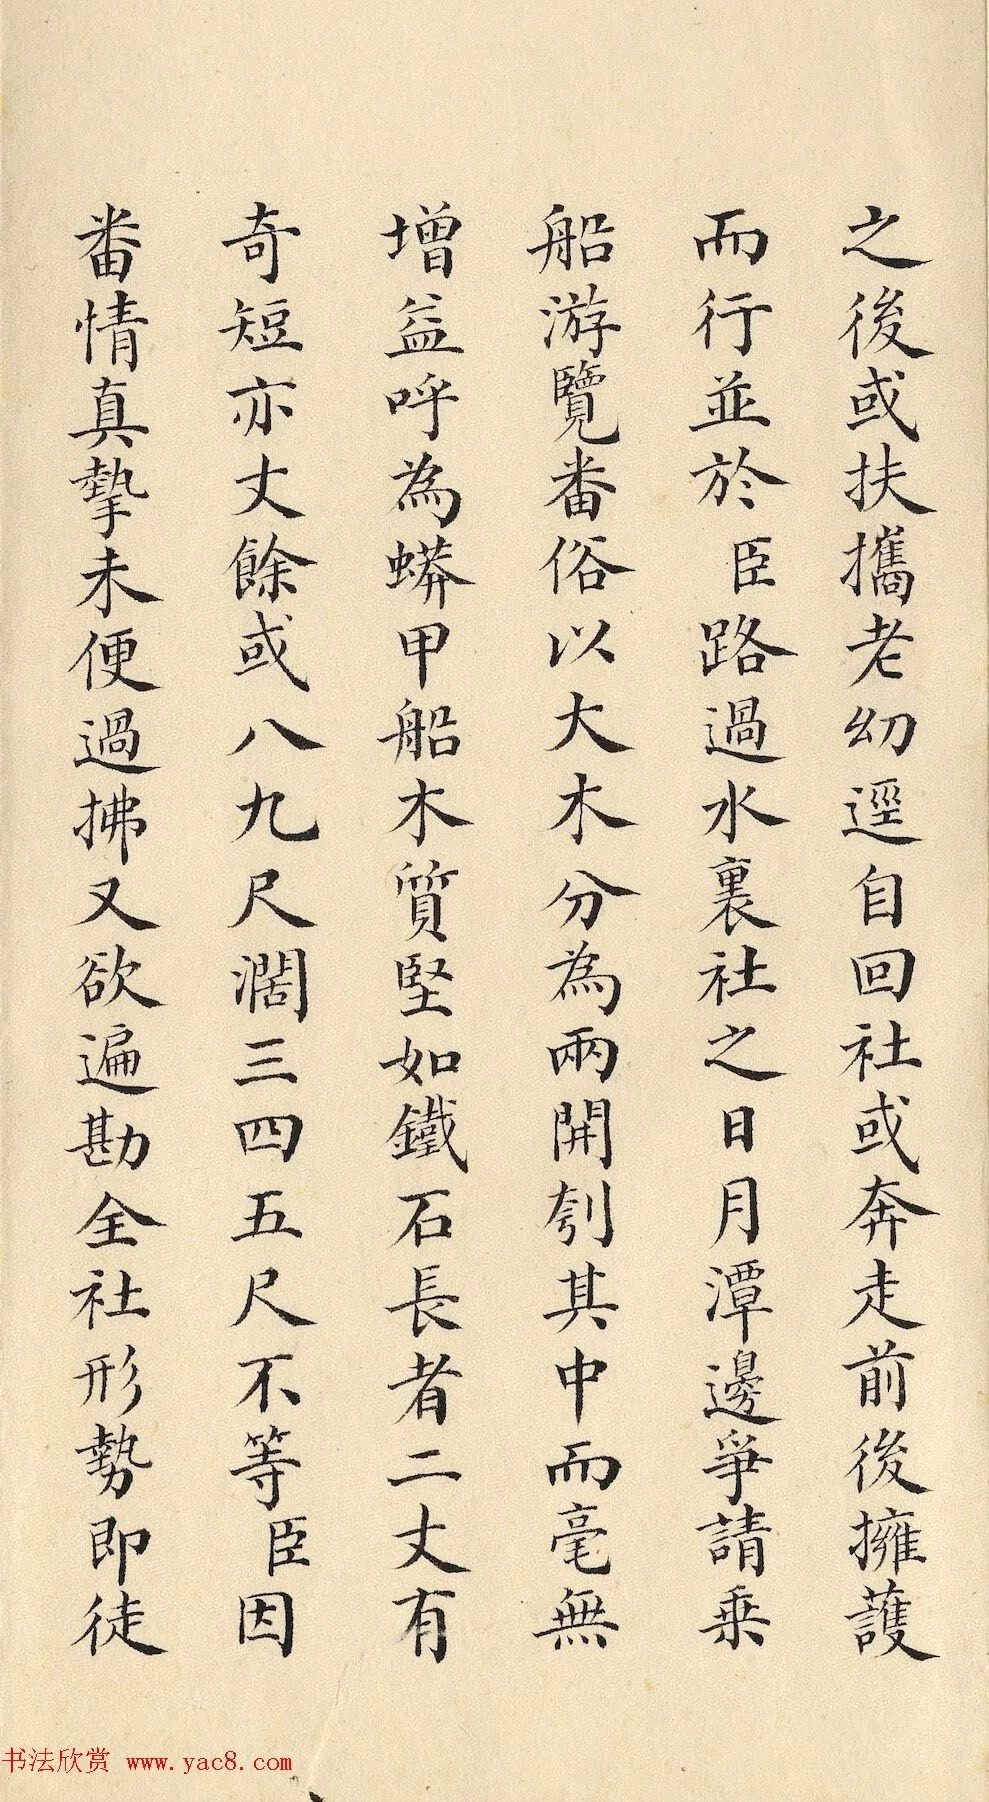 之後或扶攜老幼逕自回社或奔走前後擁護
而行並於臣路過水裏社之日月潭邊爭請乗
船游覽番俗以大木分為兩開刳其中而毫無
增益呼為蟒甲船木質堅如鐵石長者二丈有
奇短亦丈餘或八九尺濶三四五尺不等臣因
番情真摯未便過拂又欲遍勘全社形勢即徒
书法欣赏 www.yac8.com